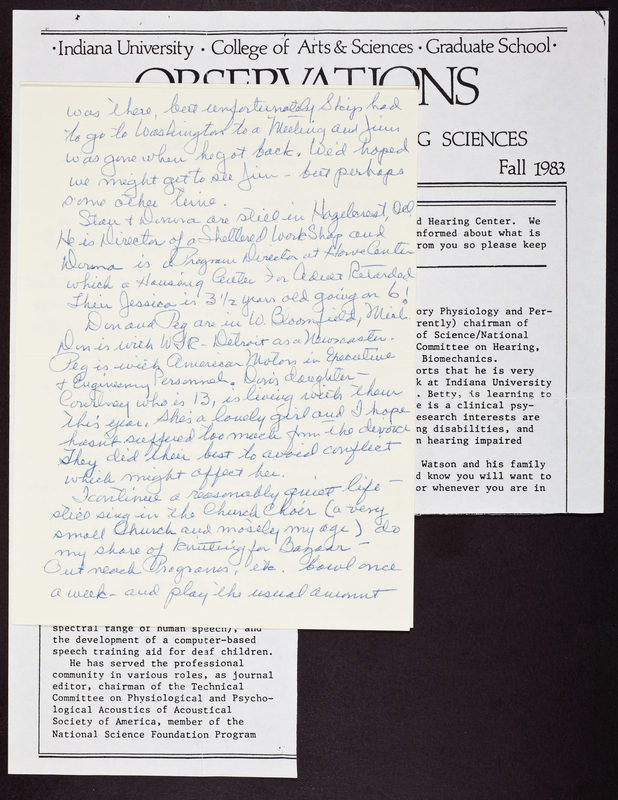 ·Indiana University · College of Arts & Sciences · Graduate School·
OBSERVATIONS
G SCIENCES
Fall 1983
was there, but unfortunately Skigs had
to go to Washington to a Meeting and Jim
was gone when he got back. We'd hoped
we might get to see Jim - but perhaps
some other time.
Stan & Donna are still in Hazelcrest, Ill.
He is Director of a Sheltered Work Shop and
Donna is a Program Director at Home Center
which a Housing Center For Adult Retarded
Their Jessica is 3 1/2 years old going on 6!
Don and Peg are in W. Bloomfield, Mich.
Don is with WJR - Detroit as a Newscaster.
Peg is with American Motors in Executive
& Engineering Personnel. Don's daughter -
Courtney who is 13, is living with them
this year. She's a lovely girl and I hope
hasn't suffered too much from the divorce
They did their best to avoid conflict
which might affect her.
I continue a reasonably quiet life -
still sing in the Church Choir (a very
small Church and mostly my age) do
my share of knitting for Bazaar -
Out reach Programs, etc. bowl once
a week - and play the usual amount
d Hearing Center. We
nformed about what is
rom you so please keep
ory Physiology and Per-
rently) chairman of
of Science/National
Committee on Hearing,
Biomechanics.
orts that he is very
k at Indiana University
. Betty, is learning to
e is a clinical psy-
esearch interests are
ng disabilities, and
n hearing impaired
Watson and his family
d know you will want to
or whenever you are in
spectral range of human speech), and
the development of a computer-based
speech training aid for deaf children.
He has served the professional
community in various roles, as journal
editor, chairman of the Technical
Committee on Physiological and Psycho-
logical Acoustics of Acoustical
Society of America, member of the
National Science Foundation Program